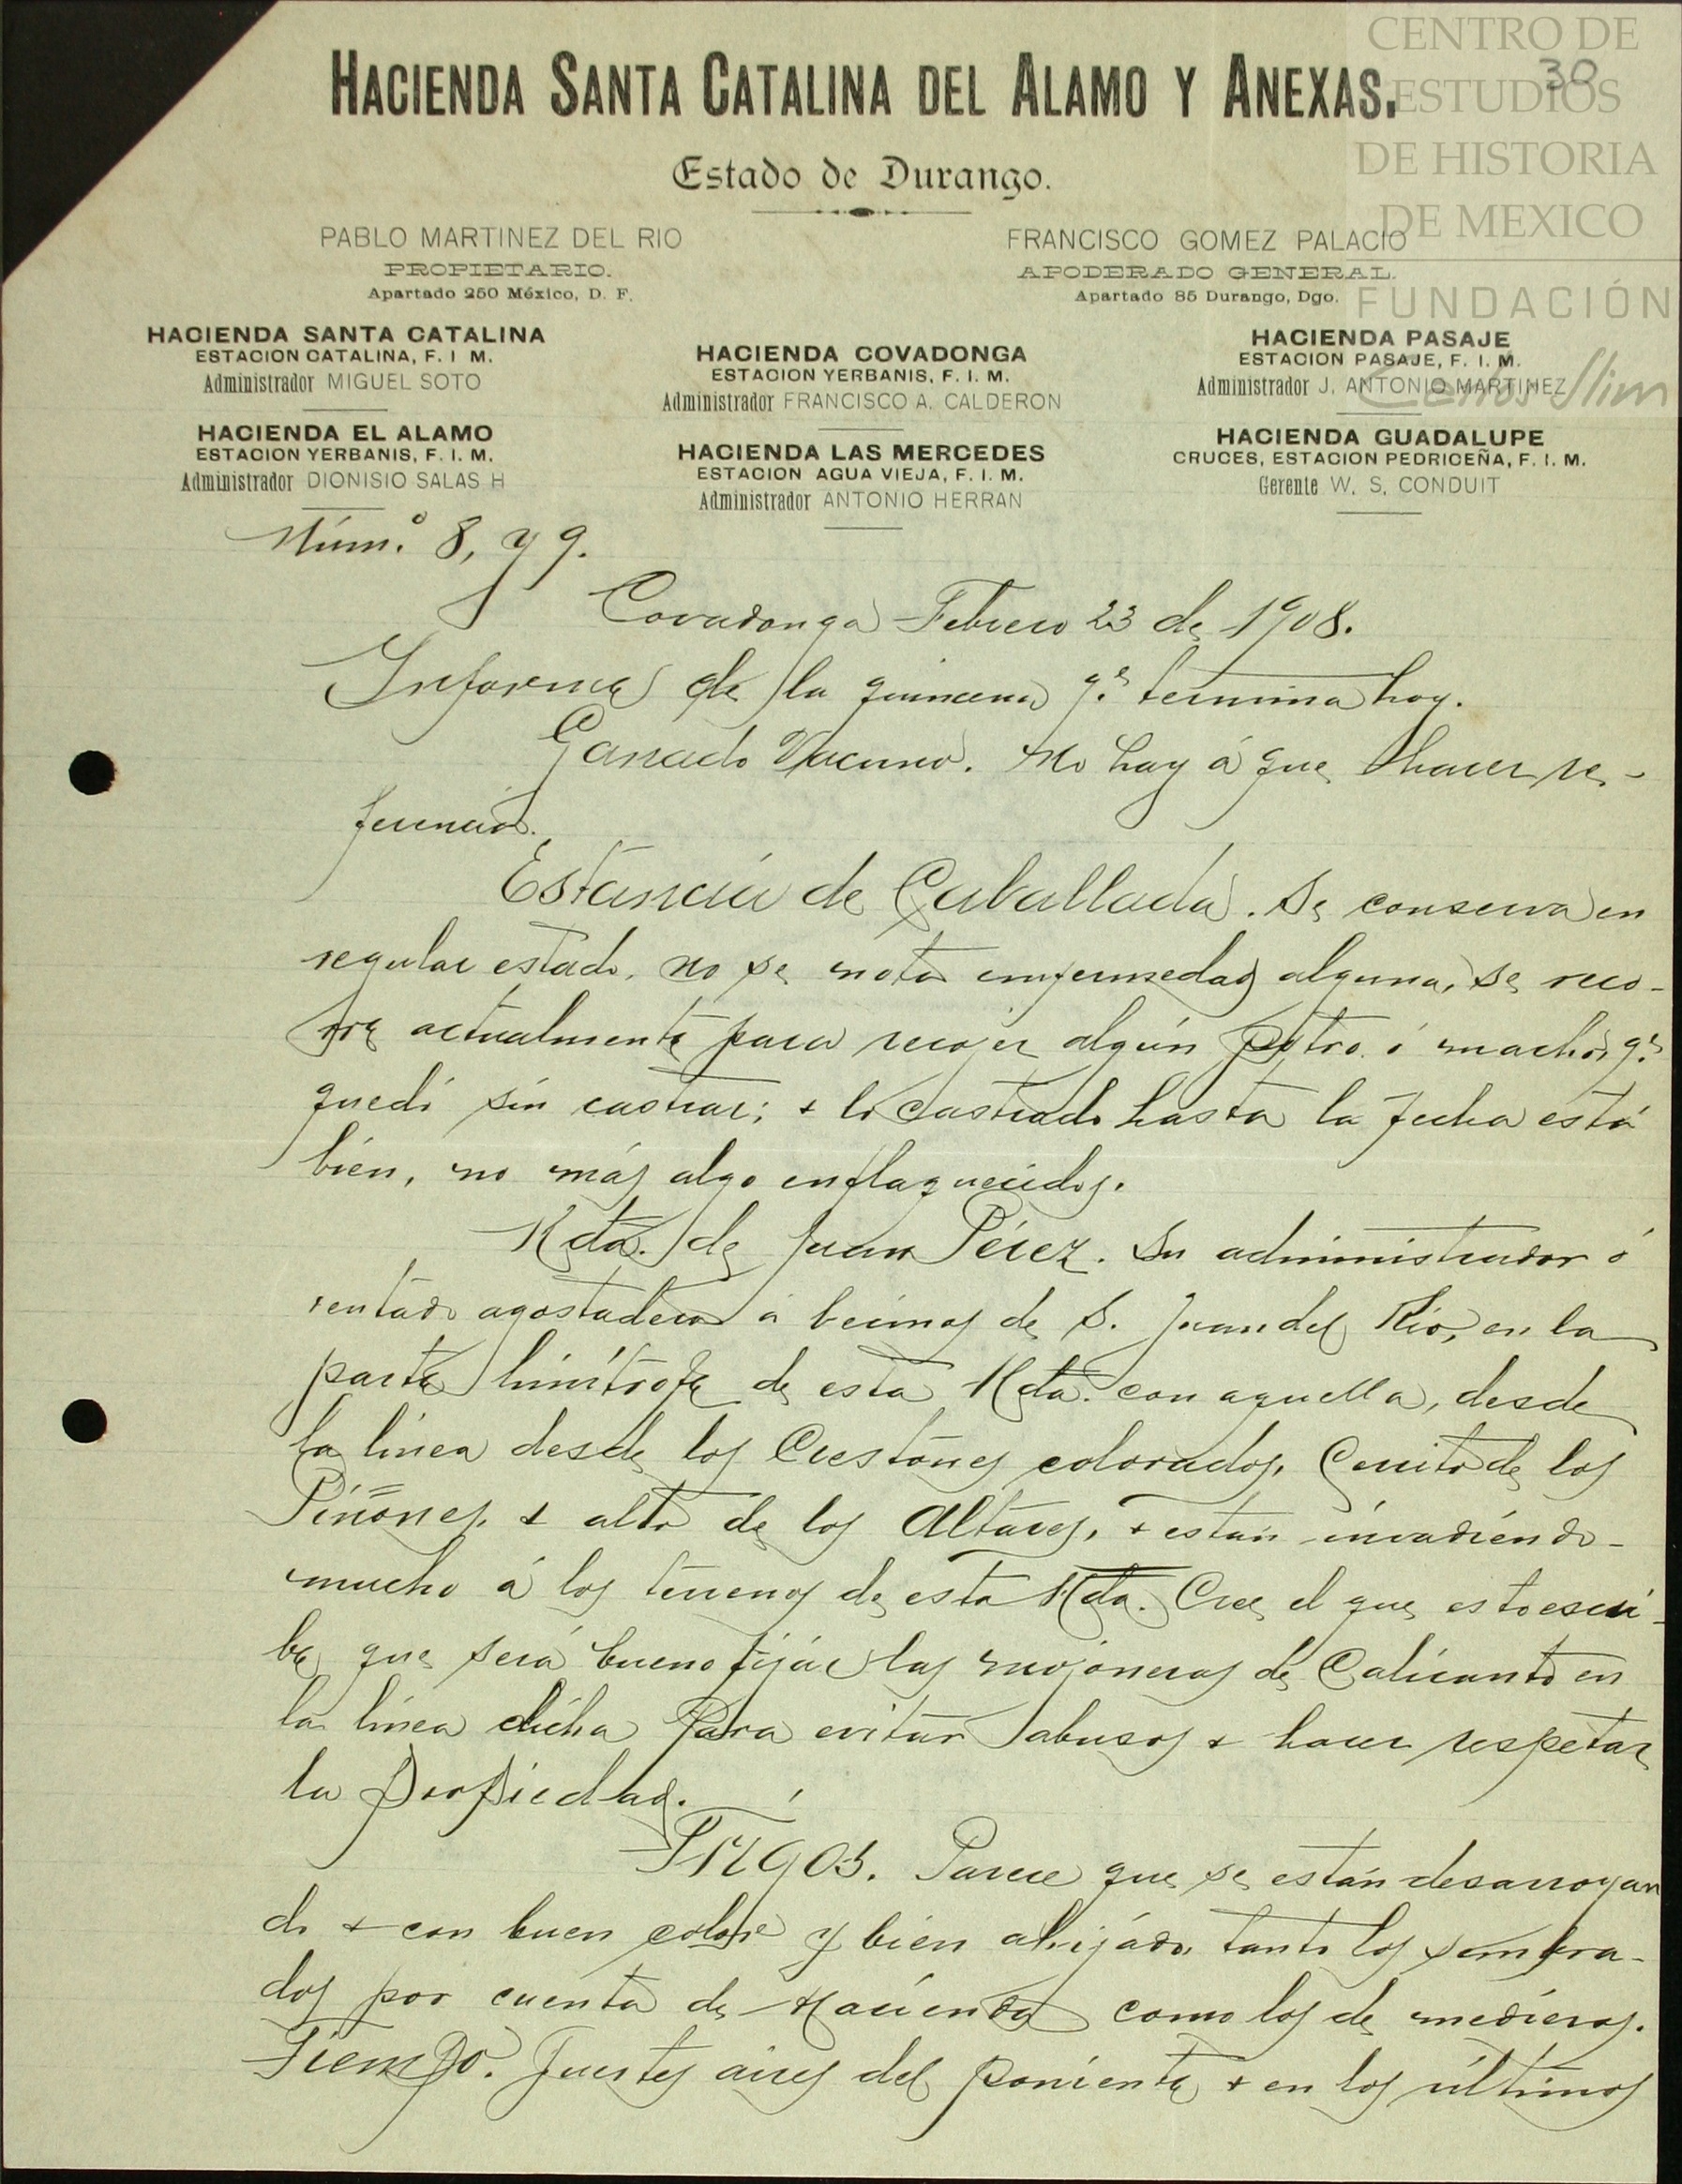 CENTRO DE
ESTUDIOS
DE HISTORIA
DE MEXICO
FUNDACIÓN
Carlos Slim
30
HACIENDA SANTA CATALINA DEL ALAMO Y ANEXAS.
Estado de Durango.
PABLO MARTINEZ DEL RIO
PROPIETARIO.
Apartado 250 México, D. F.
FRANCISCO GOMEZ PALACIO
APODERADO GENERAL.
Apartado 85 Durango, Dgo.
HACIENDA SANTA CATALINA
ESTACION CATALINA, F. I M.
Administrador MIGUEL SOTO
HACIENDA COVADONGA
ESTACION YERBANIS, F. I. M.
Administrador FRANCISCO A. CALDERON
HACIENDA PASAJE
ESTACION PASAJE, F. I. M.
Administrador J. ANTONIO MARTINEZ
HACIENDA EL ALAMO
ESTACION YERBANIS, F. I. M.
Administrador DIONISIO SALAS H
HACIENDA LAS MERCEDES
ESTACION AGUA VIEJA, F. I. M.
Administrador ANTONIO HERRAN
HACIENDA GUADALUPE
CRUCES, ESTACION PEDRICEÑA, F. I. M.
Gerente W. S. CONDUIT
Núm.º 8, y 9.
Covadonga Febrero 23 de 1908.
Informe de la quincena q.e termina hoy.
Ganado Vacuno. No hay á que hacer re-
ferencia.
Estancia de Caballada. Se conserva en
regular estado. no se nota enfermedad alguna, se reco-
rre actualmente para recojer algún potro ó macho q.e
quedó sin castrar; + lo castrado hasta la fecha está
bien, no más algo enflaquecidos.
Hda. de Juan Pérez. Su administrador ó
rentado agostadero á becinos de S. Juan del Rio, en la
parte limítrofe de esta Hda. con aquella, desde
la línea desde los Crestones colorados, Cerrito de los
Piñones, + alto de los Altares, + están invadiendo-
mucho á los terrenos de esta Hda. Cree el que esto escri-
be que será bueno fijár las mojoneras de Calicanto en
la línea dicha para evitar abusos + hacer respetar
la propiedad.
Trigos. Parece que se están desarroyan
do + con buen color y bién ahijádo, tanto los sembra-
dos por cuenta de Hacienda como los de medieros.
Tiempo. Fuertes aires del poniente + en los últimos